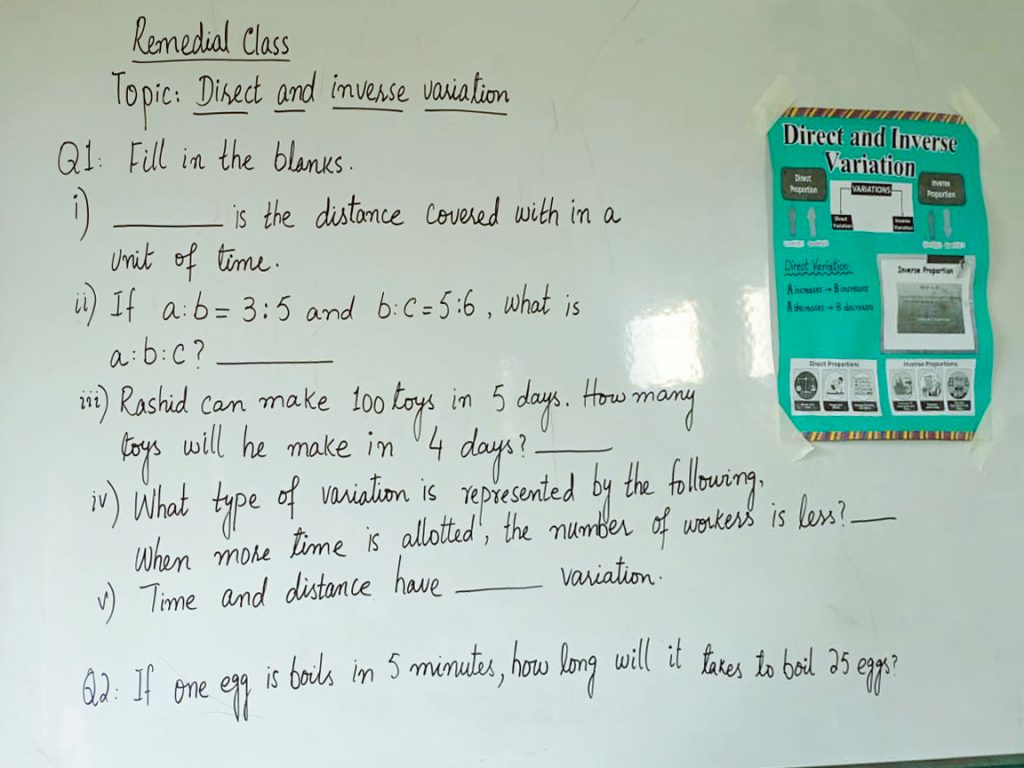 Remedial Class
Topic: Direct and inverse variation
Q1: Fill in the blanks.
i) ________ is the distance covered with in a
unit of time.
ii) If a:b = 3:5 and b:c = 5:6, what is
a:b:c? ________
iii) Rashid can make 100 toys in 5 days. How many
toys will he make in 4 days? ______
iv) What type of variation is represented by the following,
When more time is allotted, the number of workers is less? ___
v) Time and distance have ______ variation.
Q2: If one egg is boils in 5 minutes, how long will it takes to boil 25 eggs?
Direct and Inverse
Variation
Direct
Proportion
VARIATIONS
Inverse
Proportion
Direct
Variation
Inverse
Variation
Direct Variation
A increases → B increases
A decreases → B decreases
Inverse Proportion
Direct Proportions
Inverse Proportions